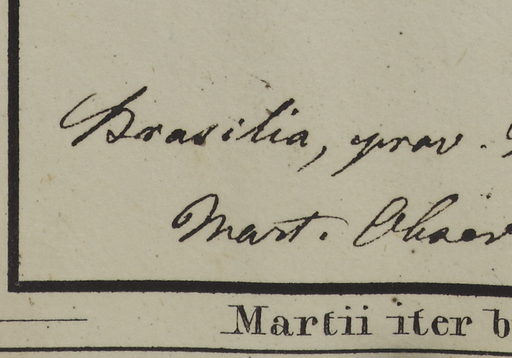 Brasilia, prov.
Mart. Obser
Martii iter b